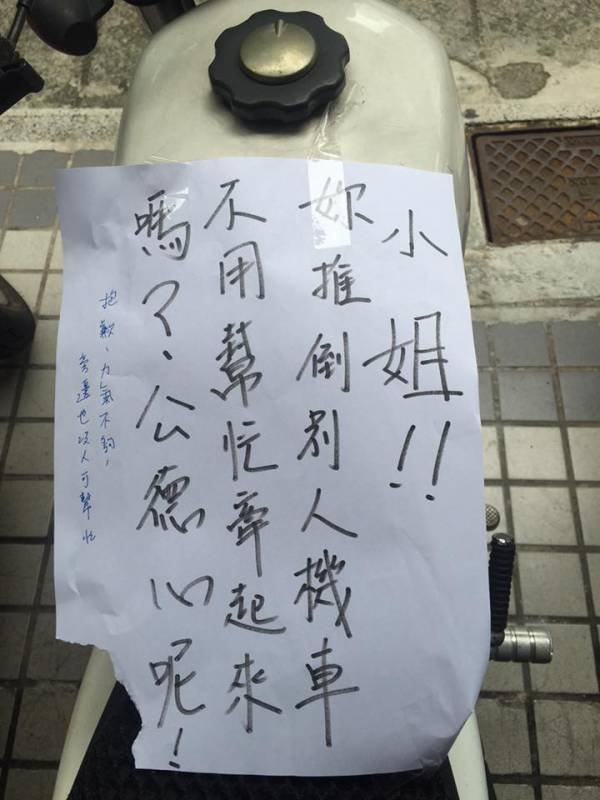 小姐!!
妳推倒別人機車
不用幫忙牽起來
嗎?、公德心呢!
抱歉、力氣不夠,
旁邊也沒人可幫忙